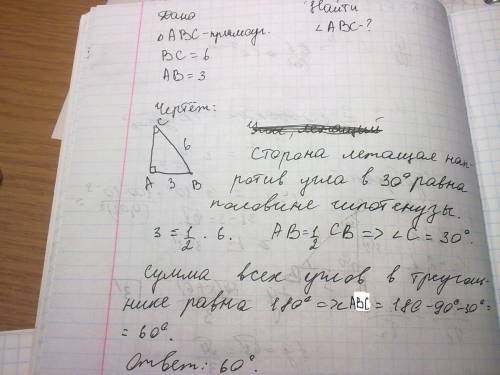 Дано
Найти
△ABC - прямоуг.
∠ABC - ?
BC = 6
AB = 3
Чертёж:
C
6
A 3 B
Сторона лежащая нап-
ротив угла в 30° равна
половине гипотенузы.
3 = 1/2 · 6. AB = 1/2 CB => ∠C = 30°.
Сумма всех углов в треуголь-
нике равна 180° => ABC = 180 - 90° - 30° =
= 60°
Ответ: 60°.